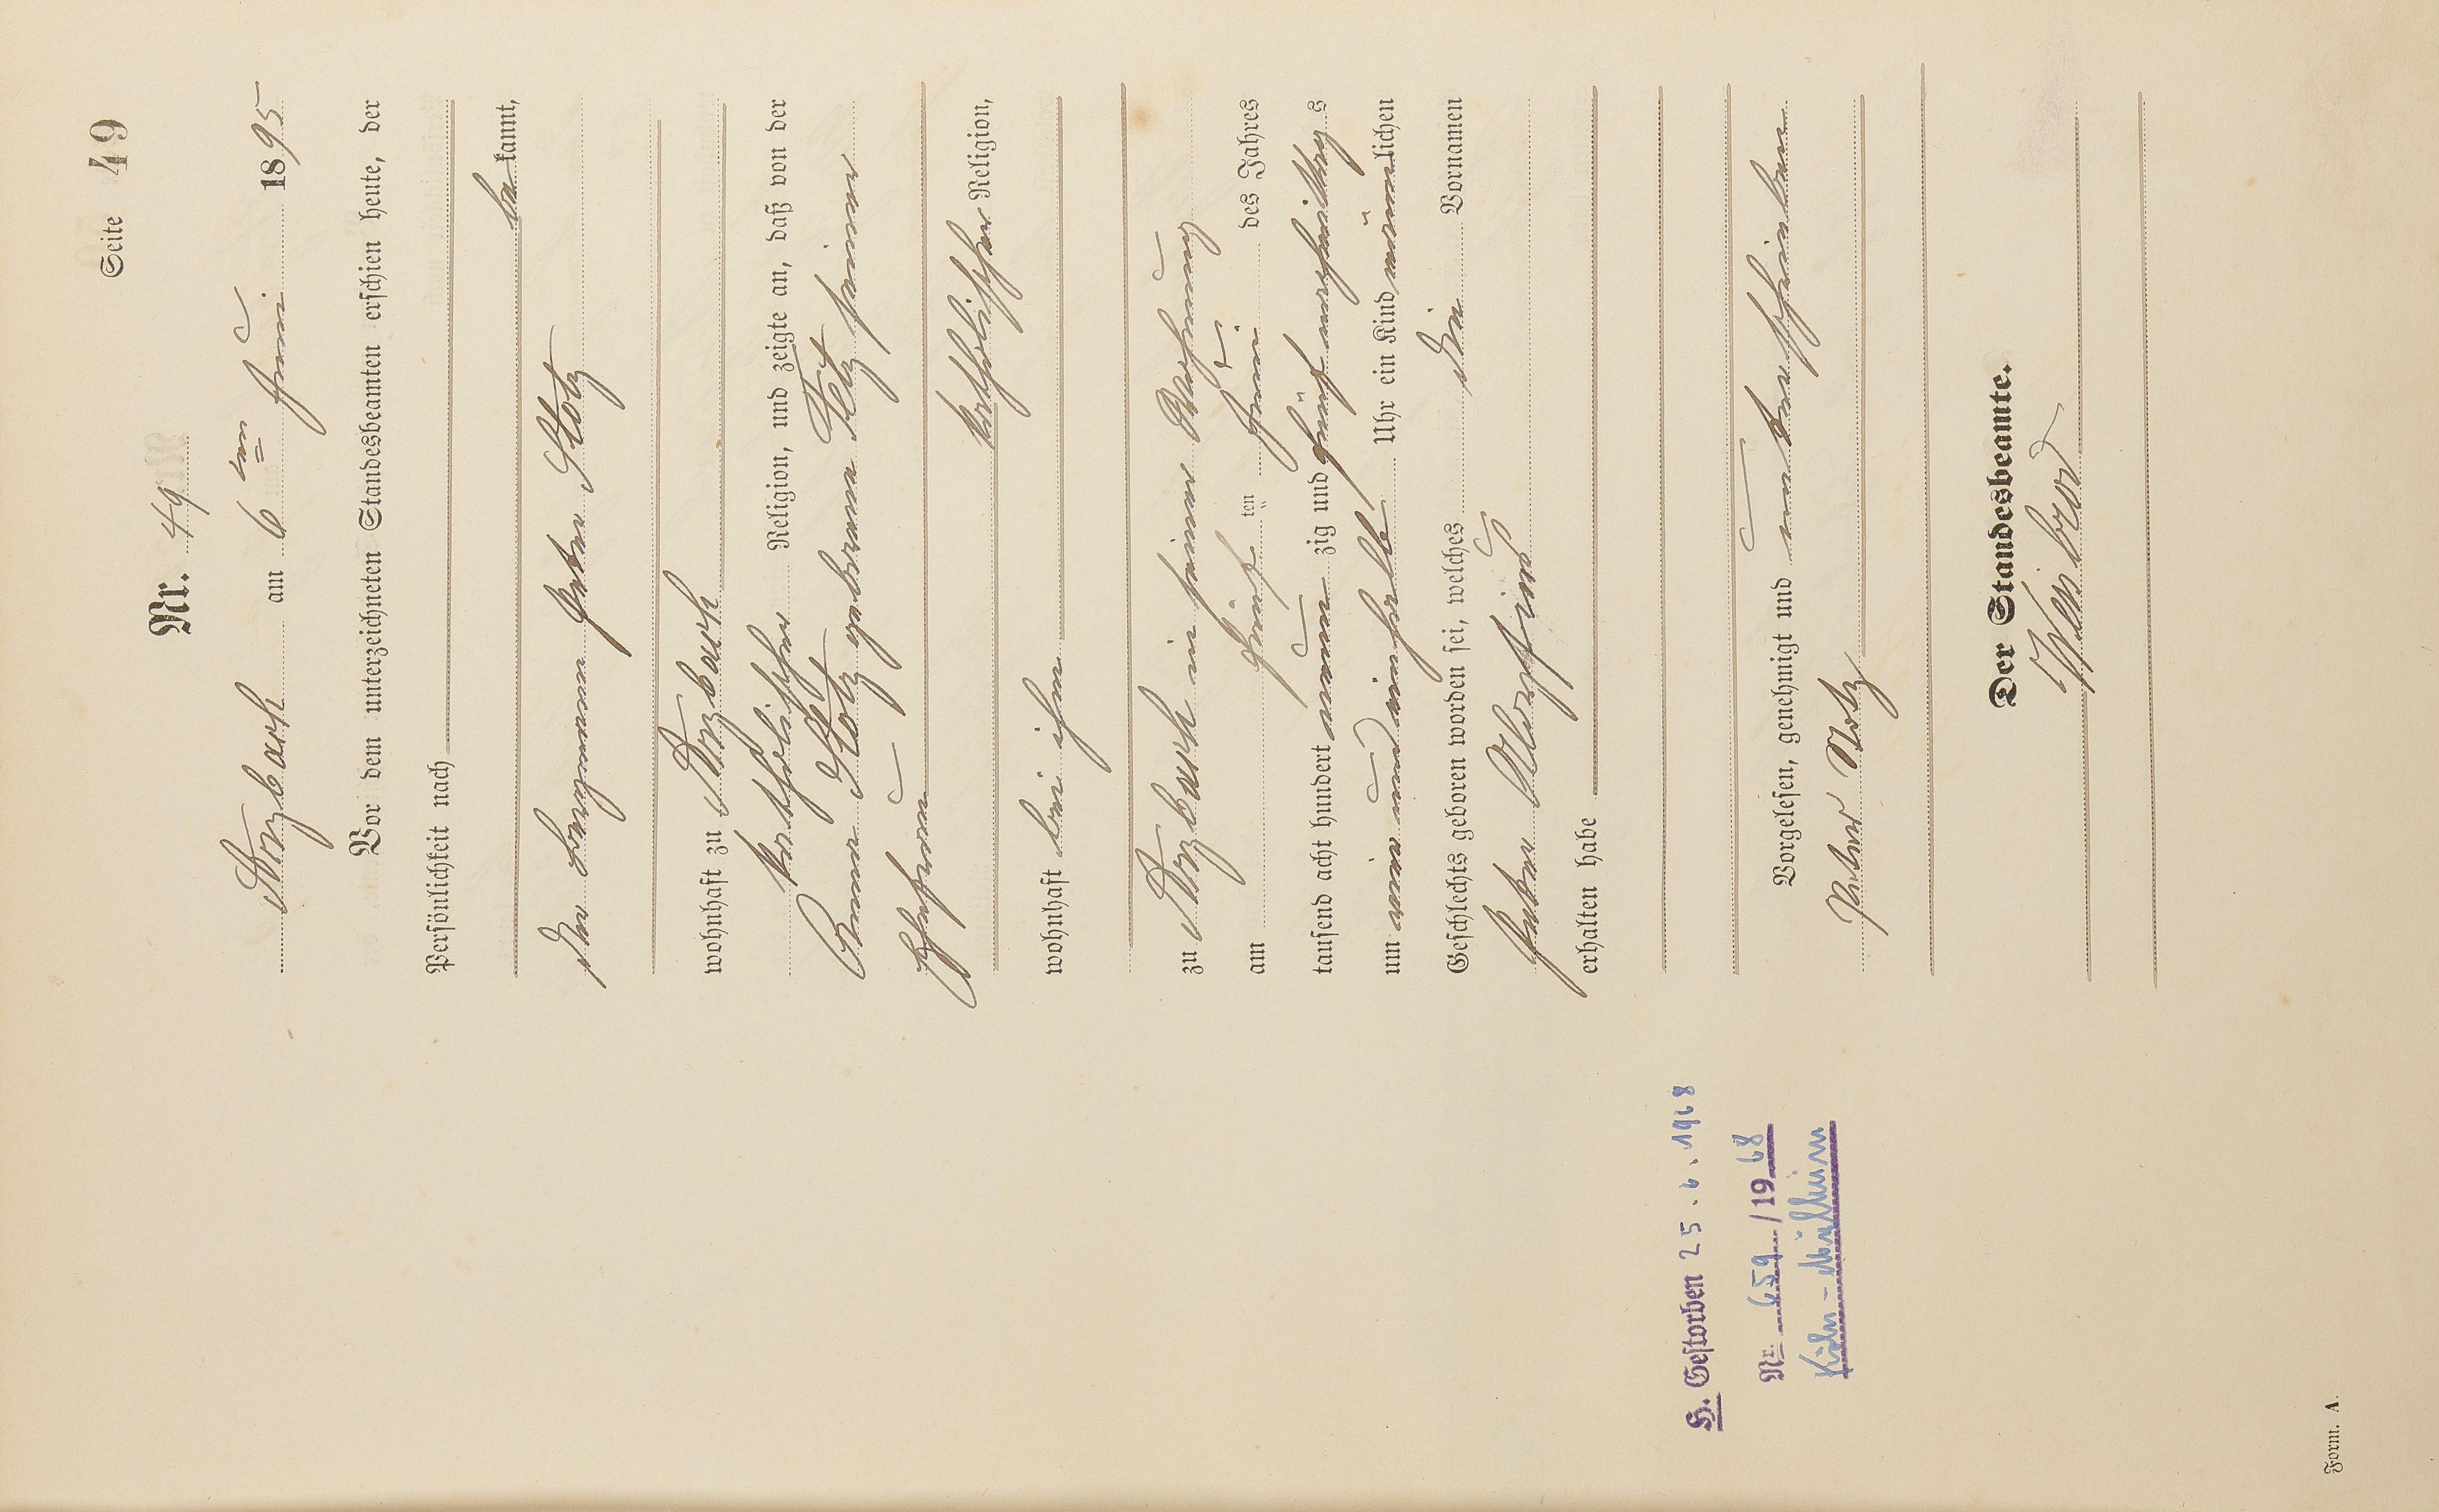 Seite 49
Nr. 49
Dorzbach am 6ten Juni 1895
Vor dem unterzeichneten Standesbeamten erschien heute, der
Persönlichkeit nach
be kannt,
der Peter Stotz
wohnhaft zu Dorzbach
katholischer Religion, und zeigte an, daß von der
Stotz geborenen seiner
Ehefrau
katholischer Religion,
wohnhaft bei ihm
zu Dorzbach in seiner Wohnung
am fünf ten Juni des Jahres
tausend acht hundert neun zig und fünf nachmittags
um ein und ein halb Uhr ein Kind männlichen
Geschlechts geboren worden sei, welches die Vornamen
Peter
erhalten habe
Vorgelesen, genehmigt und unterschrieben
Peter Stotz
Der Standesbeamte.
H. Gestorben 25.6.1968
Nr. 659/1968
Köln-Mülheim
Form. A.